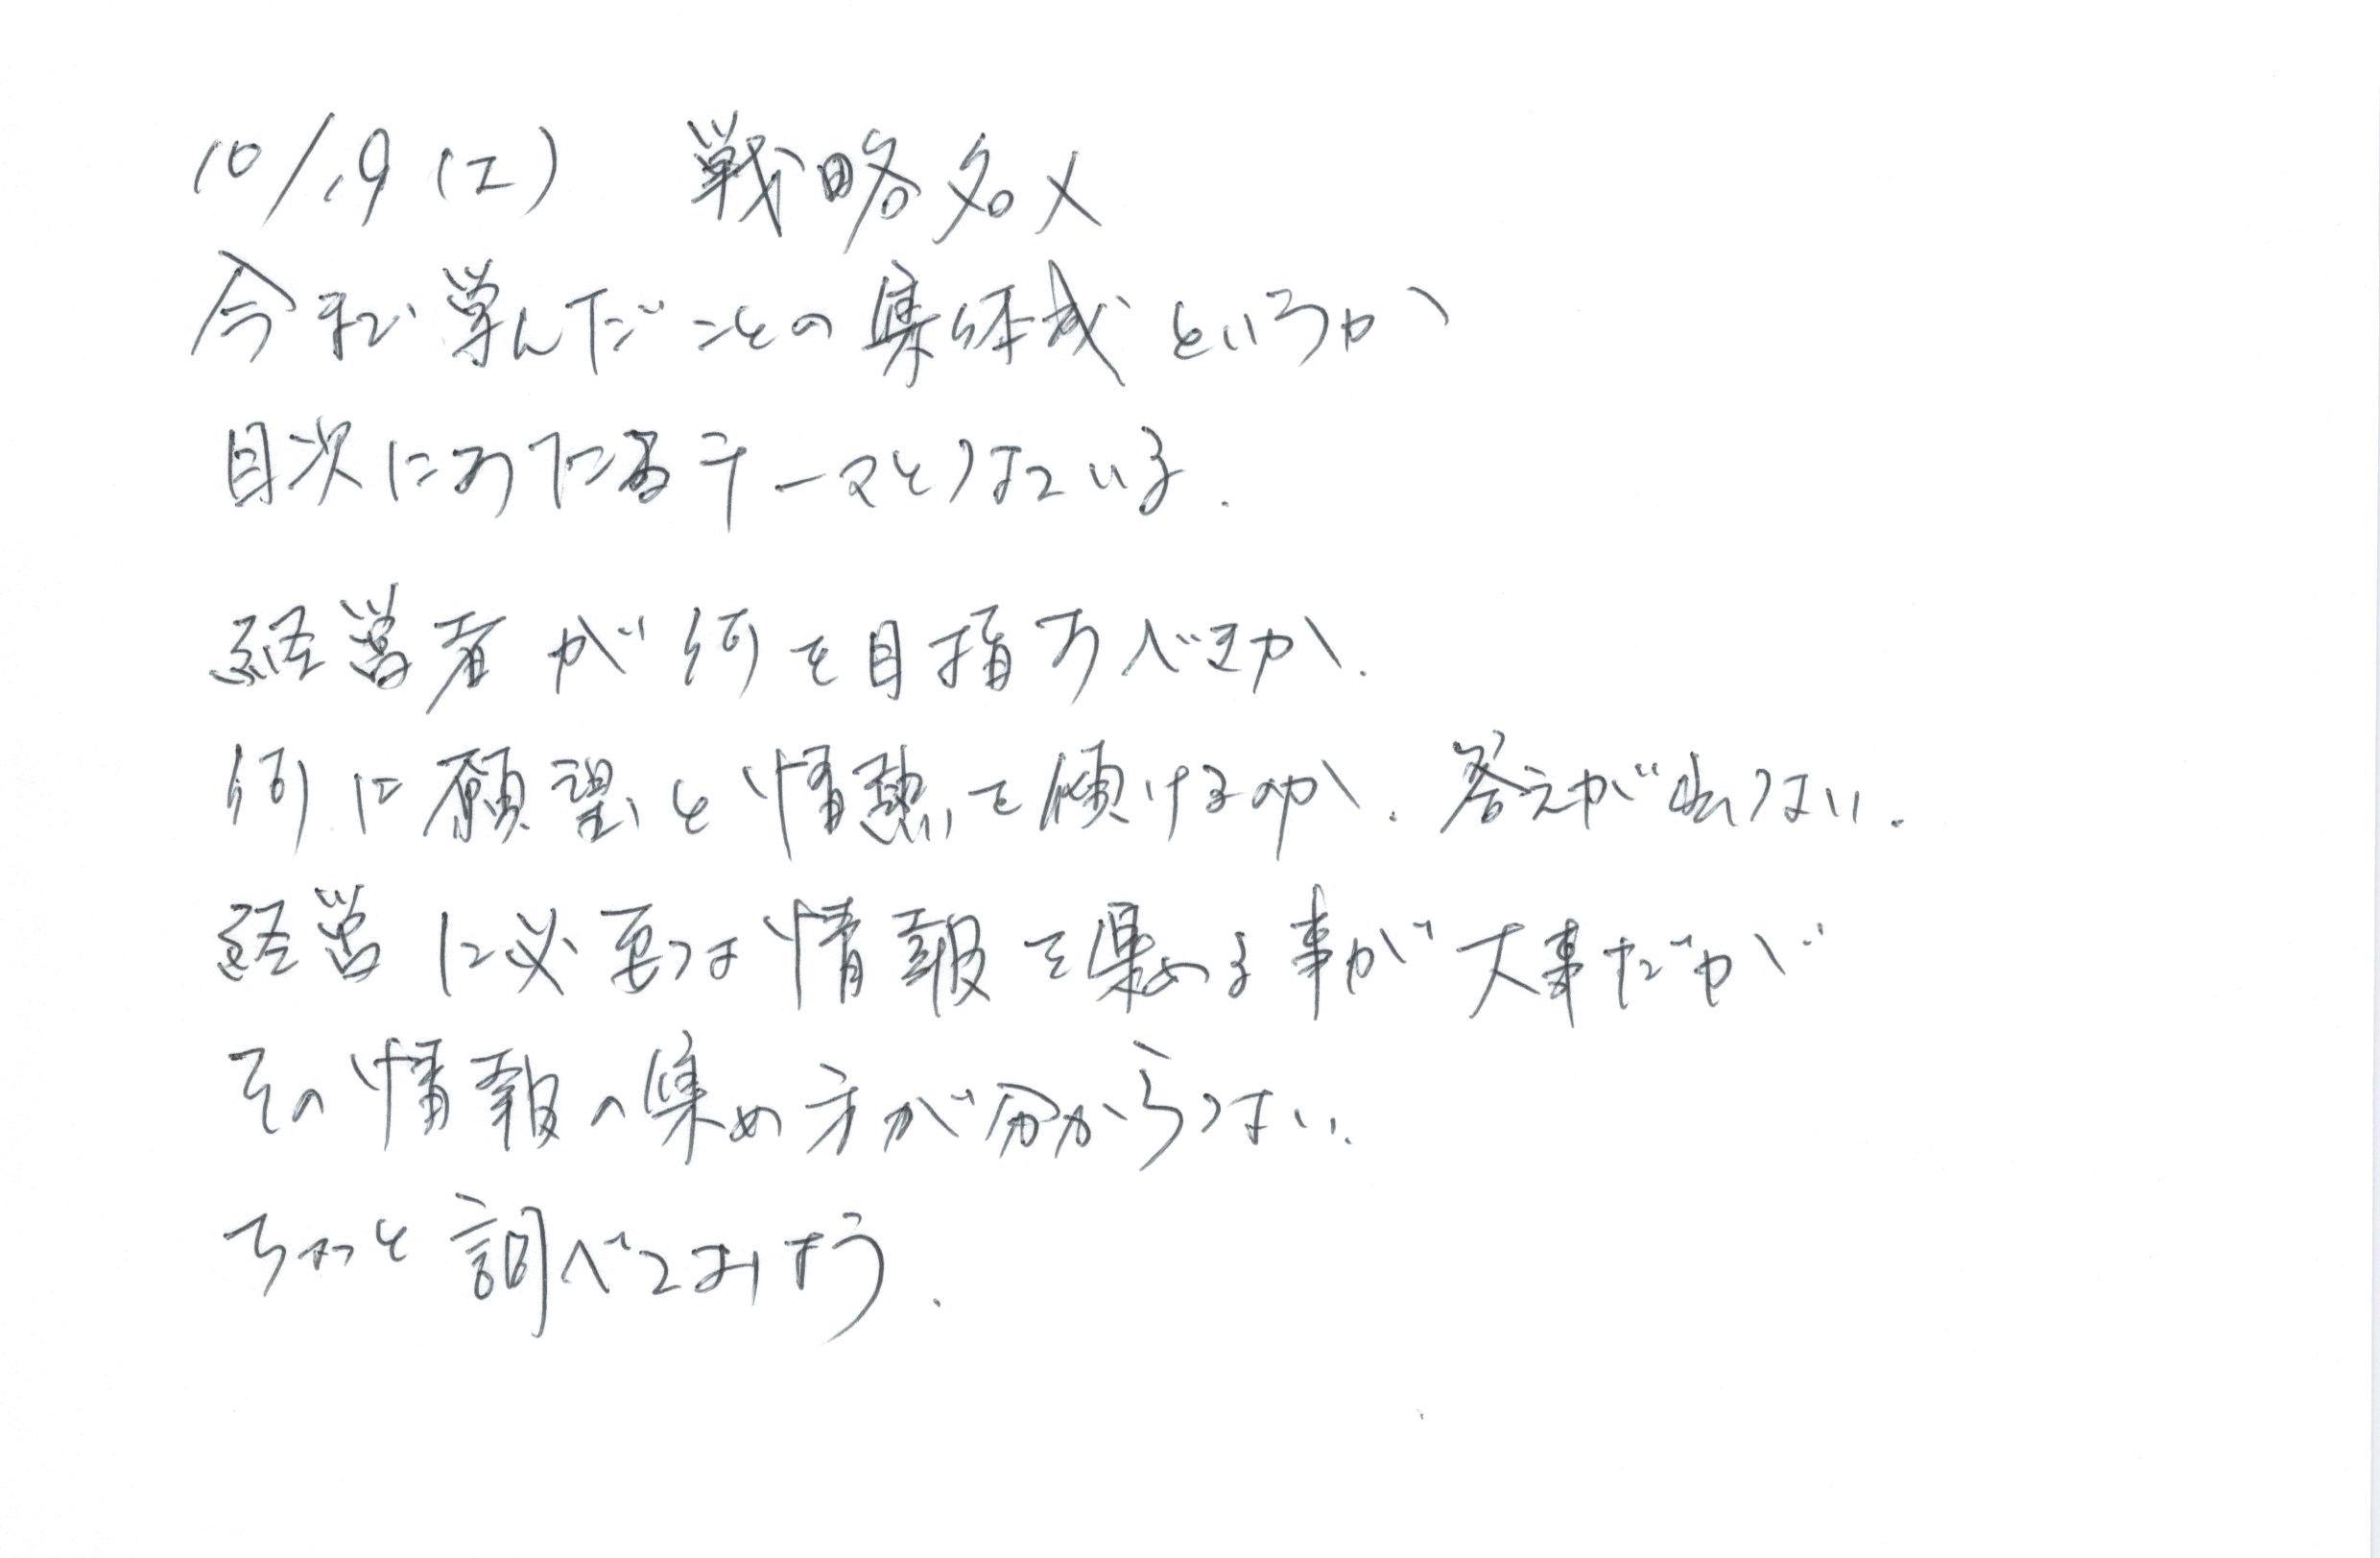 10/19(土) 戦略名人
今まで学んだことの集体成というか
目次にあたるテーマとなている.
経営者が何を目指すべきか.
何に願望と情熱を傾けるのか. 答えが出ない.
経営に必要な情報を集める事が大事だが
その情報の集め方が分からない.
ちょっと調べておけよう.